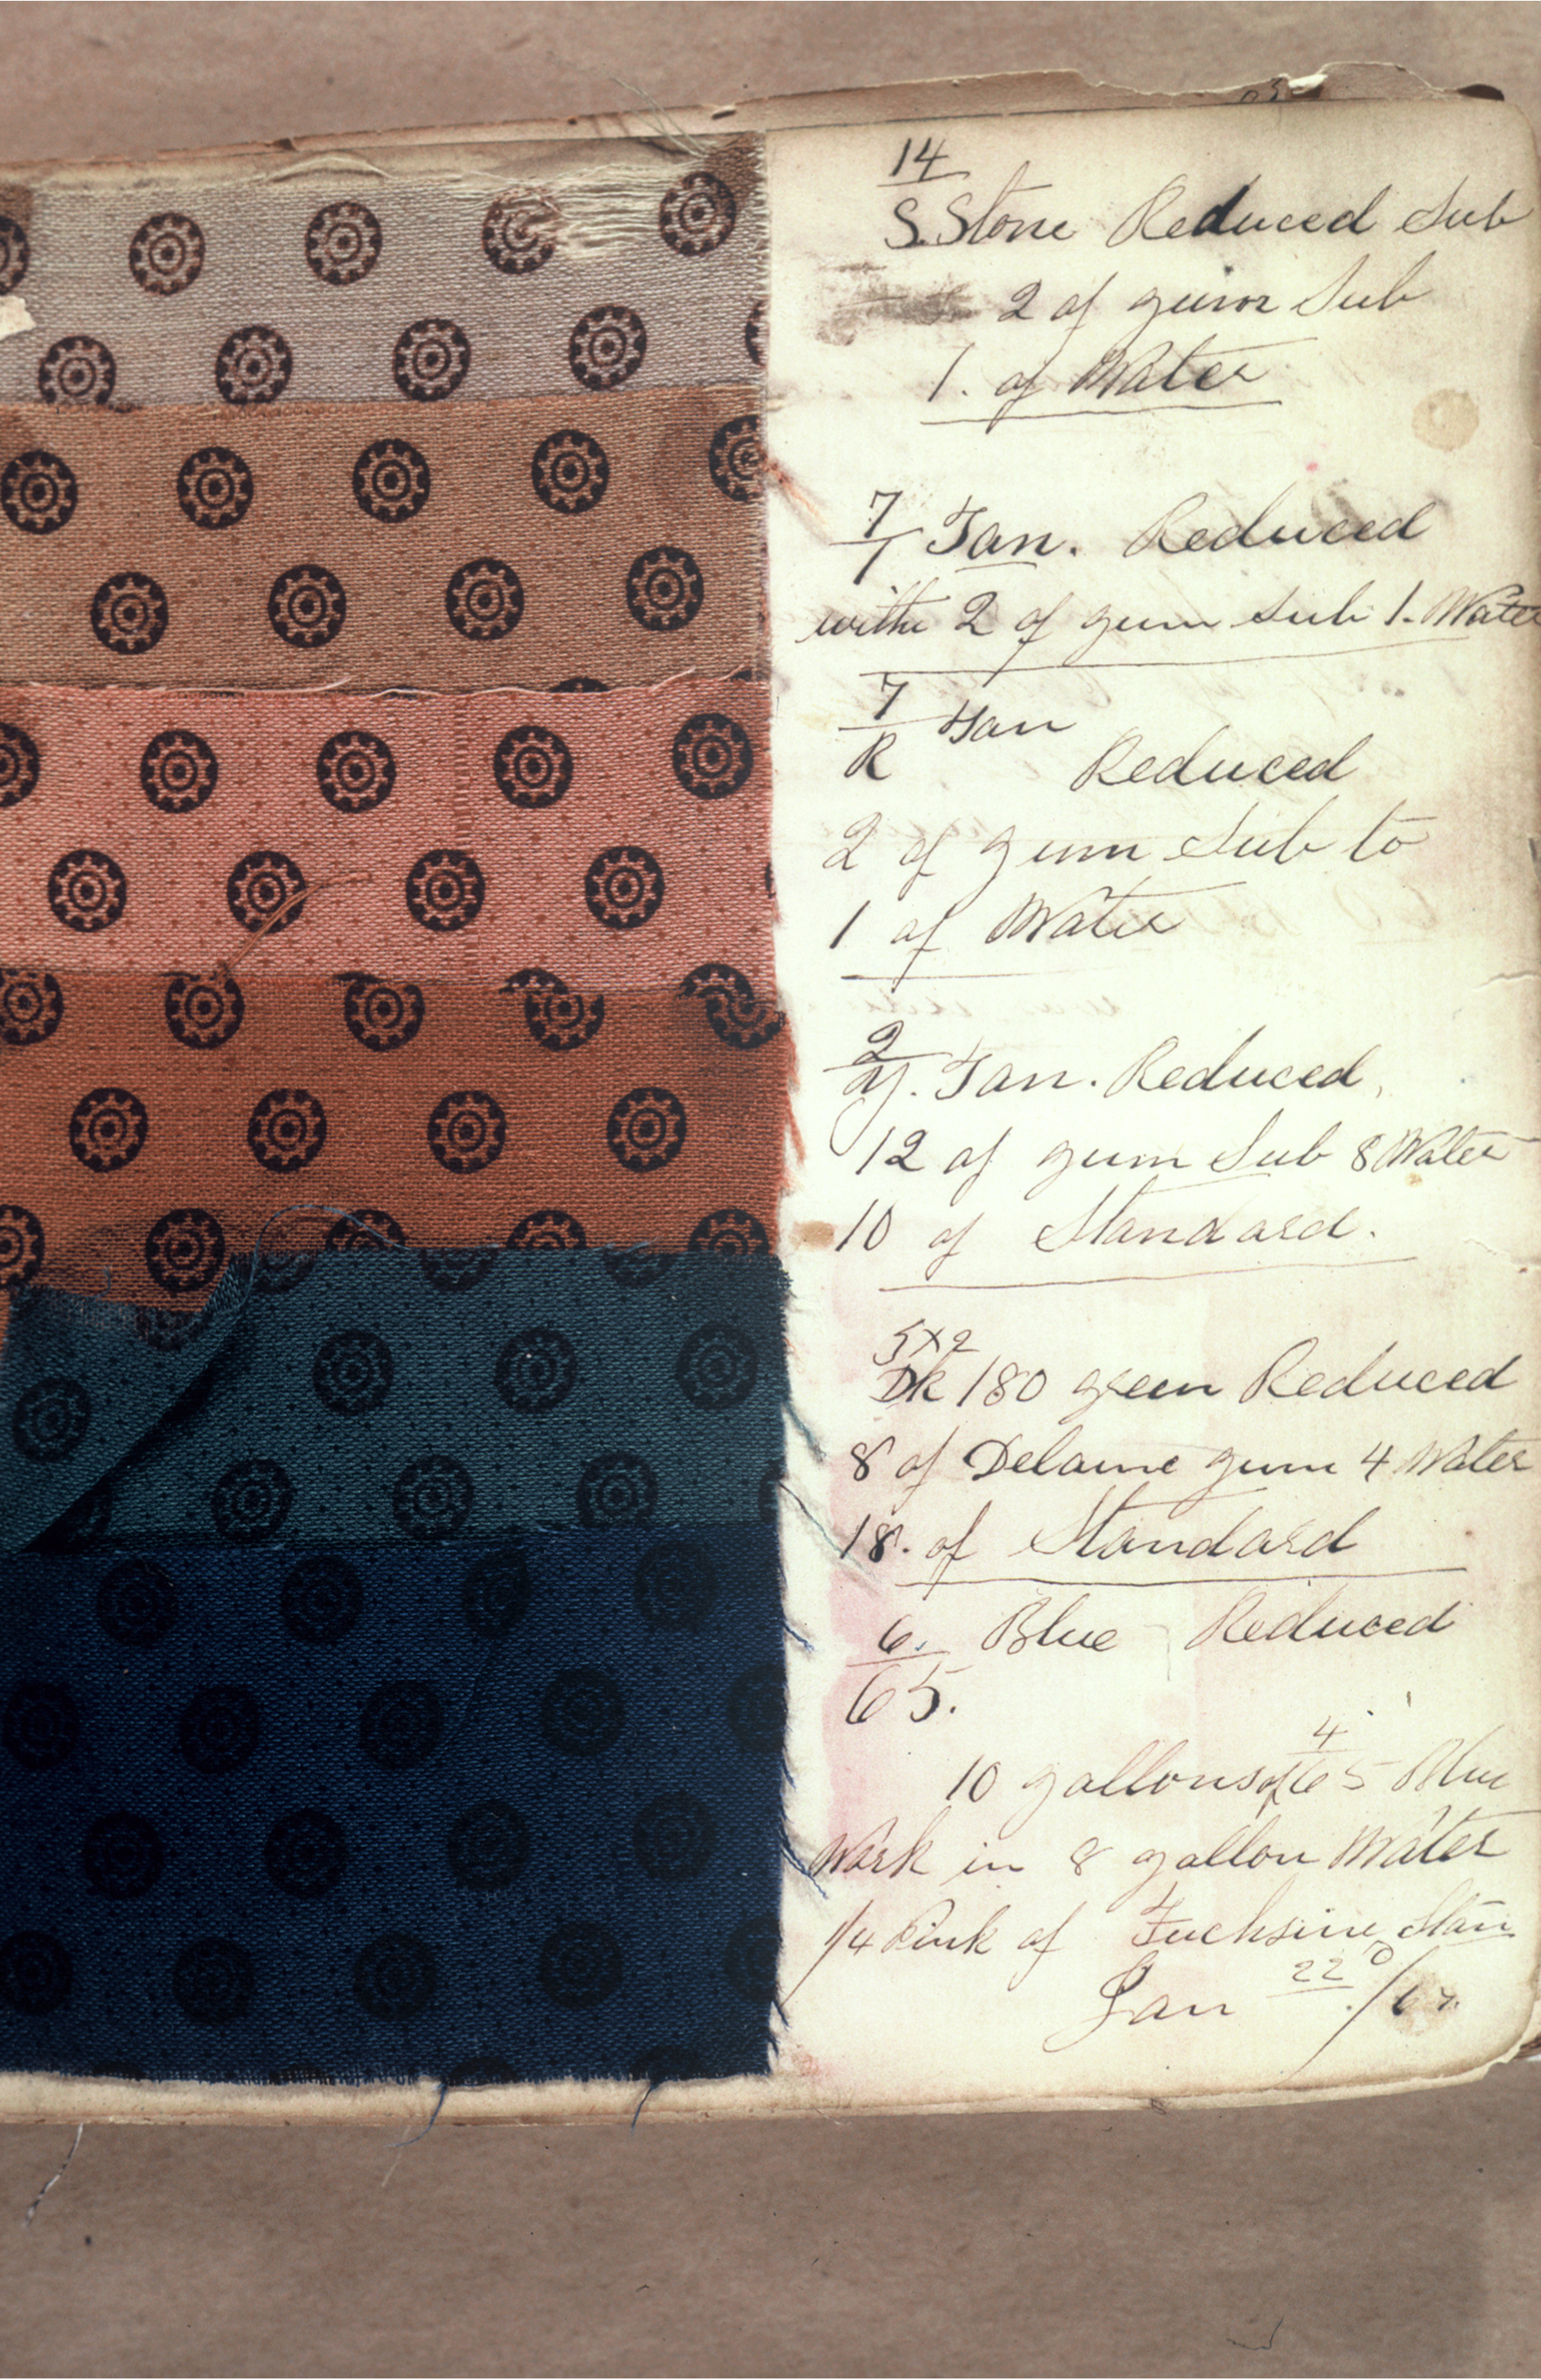 14
S. Stone Reduced Sub
2 of gum Sub
1. of Water
7/1 Tan. Reduced
with 2 of gum Sub 1. Water
7/R Tan
Reduced
2 of gum Sub to
1 of Water
2/Y. Tan. Reduced,
12 of gum Sub 8 Water
10 of Standard.
5x2
Dk 180 green Reduced
8 of Delaine gum 4 Water
18. of Standard
6. Blue Reduced
65.
10 gallons of 4/65 Blue
Work in 8 gallon Water
1/4 Pink of Fuchsine Stan
Jan 22